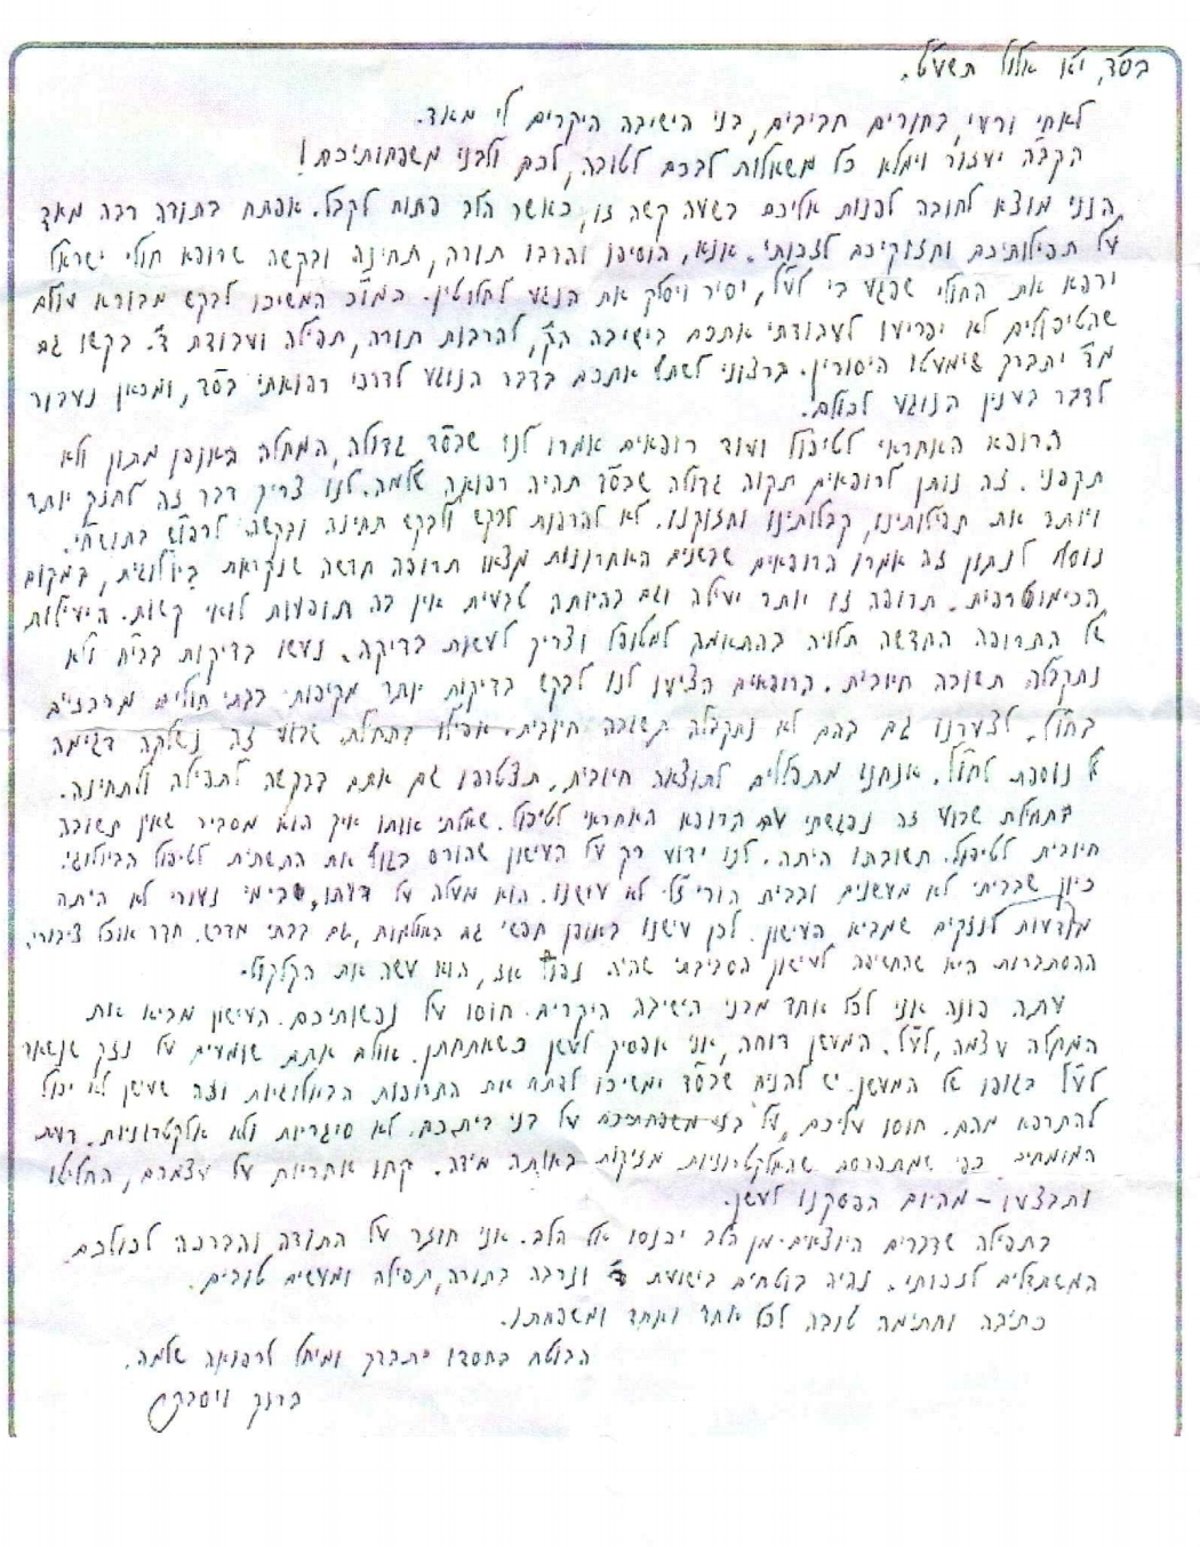 בס״ד, י״ו אלול תשע״ט.
לאחי ורעי, בחורים חביבים, בני הישיבה היקרים לי מאד.
הקב״ה יעזור וימלא כל משאלות לבכם לטובה, לכם ולבני משפחותיכם!
הנני מוצא לחובה לפנות אליכם בשעה קשה זו, כאשר הלב פתוח לקבל. אפתח בתודה רבה מאד
על תפילותיכם וחזוקיכם לזכותי. אנא, הוסיפו והרבו תורה, תחינה ובקשה שרופא חולי ישראל
ירפא את החולי שפגע בי ל״ע, יסיר ויסלק את הנגע לחלוטין. כמו״כ המשיכו לבקש מבורא עולם
שהטיפולים לא יפריעו לעבודתי אתכם בישיבה הק׳, להרבות תורה, תפילה ועבודת ד׳. בקשו גם
מד׳ יתברך שימעטו היסורין. ברצוני לשתף אתכם בדבר הנוגע לדרכי רפואתי בס״ד, ומכאן נעבור
לדבר בענין הנוגע לכולם.
הרופא האחראי לטיפול ועוד רופאים אמרו לנו שבס״ד גדולה, המחלה באופן מתון ולא
תקפני. זה נותן לרופאים תקוה גדולה שבס״ד תהיה רפואה שלמה. לנו צריך דבר זה לחזק יותר
ויותר את תפילותינו, קבלותינו וחזוקנו. לא להרפות לבקש ולבקש תחינה ובקשה
נוסף לנתון זה אמרו הרופאים שבשנים האחרונות מצאו תרופה חדשה שנקראת ביולוגית, במקום
הכימוטרפית. תרופה זו יותר יעילה וגם בהיותה טבעית אין בה תופעות לואי קשות. היעילות
של התרופה החדשה תלויה בהתאמה למטופל וצריך לעשות בדיקה. נעשו בדיקות בבי״ח ולא
נתקבלה תשובה חיובית. הרופאים הציעו לנו לבקש בדיקות יותר מקיפות בבתי חולים מרכזיים
בחו״ל. לצערנו גם בהם לא נתקבלה תשובה חיובית. אפילו בתחילת שבוע זה נשלחה דגימה
נוספת לחו״ל. אנחנו מתפללים לתוצאה חיובית. תצטרפו גם אתם בבקשה לתפילה ולתחינה.
בתחילת שבוע זה נפגשתי עם הרופא האחראי לטיפול. שאלתי אותו איך הוא מסביר שאין תשובה
חיובית לטיפול. תשובתו היתה. לנו ידוע רק על העישון שהורס בגוף את התשתית לטיפול הביולוגי.
כיון שבביתי לא מעשנים ובבית הורי ז״ל לא עישנו. הוא מעלה על דעתו, שבימי נעורי לא היתה
מודעות לנזקים שמביא העישון. לכן עישנו באופן חפשי גם באולמות, גם בבתי מדרש. חדר אוכל ציבורי.
ההסתברות היא שהחשיפה לעישון הסביבתי שהיה נפוץ אז, הוא עשה את הקלקול.
עתה פונה אני לכל אחד מבני הישיבה היקרים. חוסו על נפשותיכם. העישון מביא את
המחלה עצמה, ל״ע. המעשן דוחה, אני אפסיק לעשן כשאתחתן. אולם אתם שומעים על נזק שנשאר
ל״ע בגופו של המעשן. יש להניח שבס״ד ימשיכו לפתח את התרופות הביולוגיות ומה שעישן לא יוכל
להתרפא מהם. חוסו עליכם, על בני משפחתיכם על בני ביתכם. לא סיגריות ולא אלקטרוניות. דעת
המומחים כפי שמתפרסם שהאלקטרוניות מזיקות באותה מידה. קחו אחריות על עצמכם, החליטו
ותבצעו – מהיום הפסקנו לעשן.
בתפילה שדברים היוצאים מן הלב יכנסו אל הלב. אני חוזר על התודה והברכה לכולכם
המשתדלים לזכותי. נהיה בוטחים בישועת ד׳ ונרבה בתורה, תפילה ומעשים טובים.
כתיבה וחתימה טובה לכל אחד ואחד ומשפחתו.
הבוטח בחסדו יתברך ומיחל לרפואה שלמה.
ברוך ויסבקר